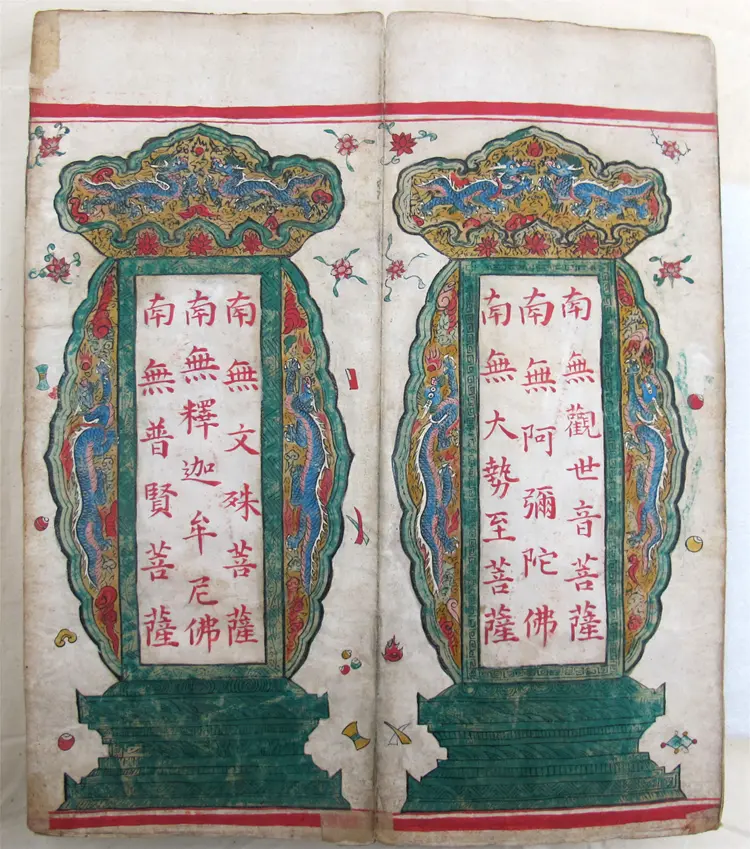 南無觀世音菩薩
南無阿彌陀佛
南無大勢至菩薩
南無文殊菩薩
南無釋迦牟尼佛
南無普賢菩薩